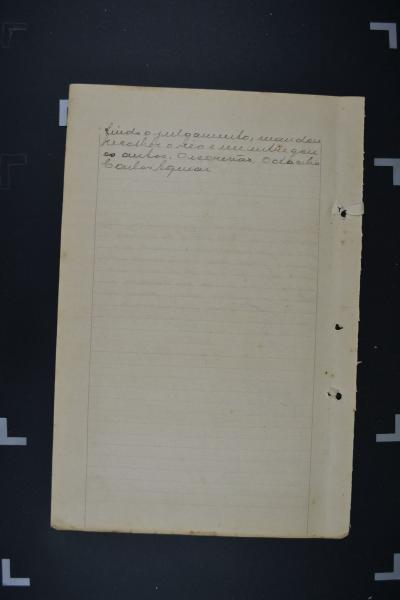 findo o julgamento, mandou
recolher o réo e me entregou
os autos. O escrivão
Carlos Aguiar